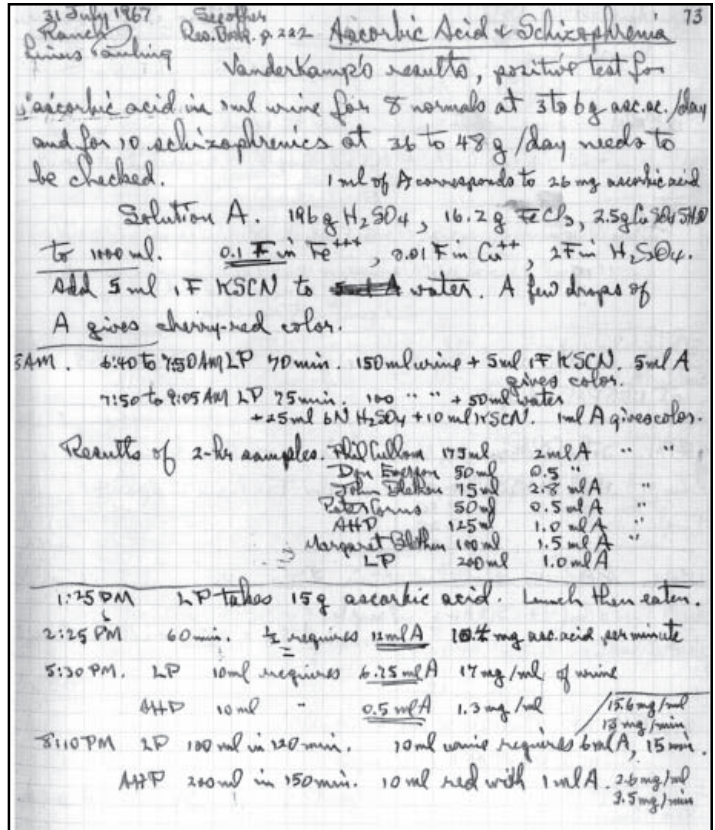 31 July 1967 See other 73
Ranch Res. Book p. 222 Ascorbic Acid & Schizophrenia
Linus Pauling
VanderKamp's results, positive test for
ascorbic acid in 1ml urine for 8 normals at 3 to 6 g asc. ac. /day
and for 10 schizophrenics at 36 to 48 g /day needs to
be checked. 1 ml of A corresponds to 26 mg ascorbic acid
Solution A. 196 g H2SO4, 16.2 g FeCl3, 2.5 g CuSO4 5H2O
to 1000 ml. 0.1 F in Fe+++, 0.01 F in Cu++, 2 F in H2SO4.
Add 5 ml 1F KSCN to water. A few drops of
A gives cherry-red color.
AM. 6:40 to 7:50 AM LP 70 min. 150 ml urine + 5 ml 1F KSCN. 5 ml A
gives color.
7:50 to 9:05 AM LP 75 min. 100 " " + 50 ml water
+25 ml 6N H2SO4 + 10 ml KSCN. 1 ml A gives color.
Results of 2-hr samples. Phil Cullom 175 ml 2 ml A " "
50 ml 0.5 "
John Blethen 75 ml 2.8 ml A "
Peter 50 ml 0.5 ml A "
AHP 125 ml 1.0 ml A "
Margaret Blethen 100 ml 1.5 ml A "
LP 200 ml 1.0 ml A
1:25 PM LP takes 15 g ascorbic acid. Lunch then eaten.
2:25 PM 60 min. ½ requires 12 ml A mg asc. acid per minute
5:30 PM. LP 10 ml requires 6.75 ml A 17 mg/ml of urine
AHP 10 ml " 0.5 ml A 1.3 mg/ml
15.6 mg/ml
13 mg/min
8:10 PM LP 100 ml in 120 min. 10 ml urine requires 6 ml A, 15 min.
AHP 200 ml in 150 min. 10 ml red with 1 ml A. 2.6 mg/ml
3.5 mg/min